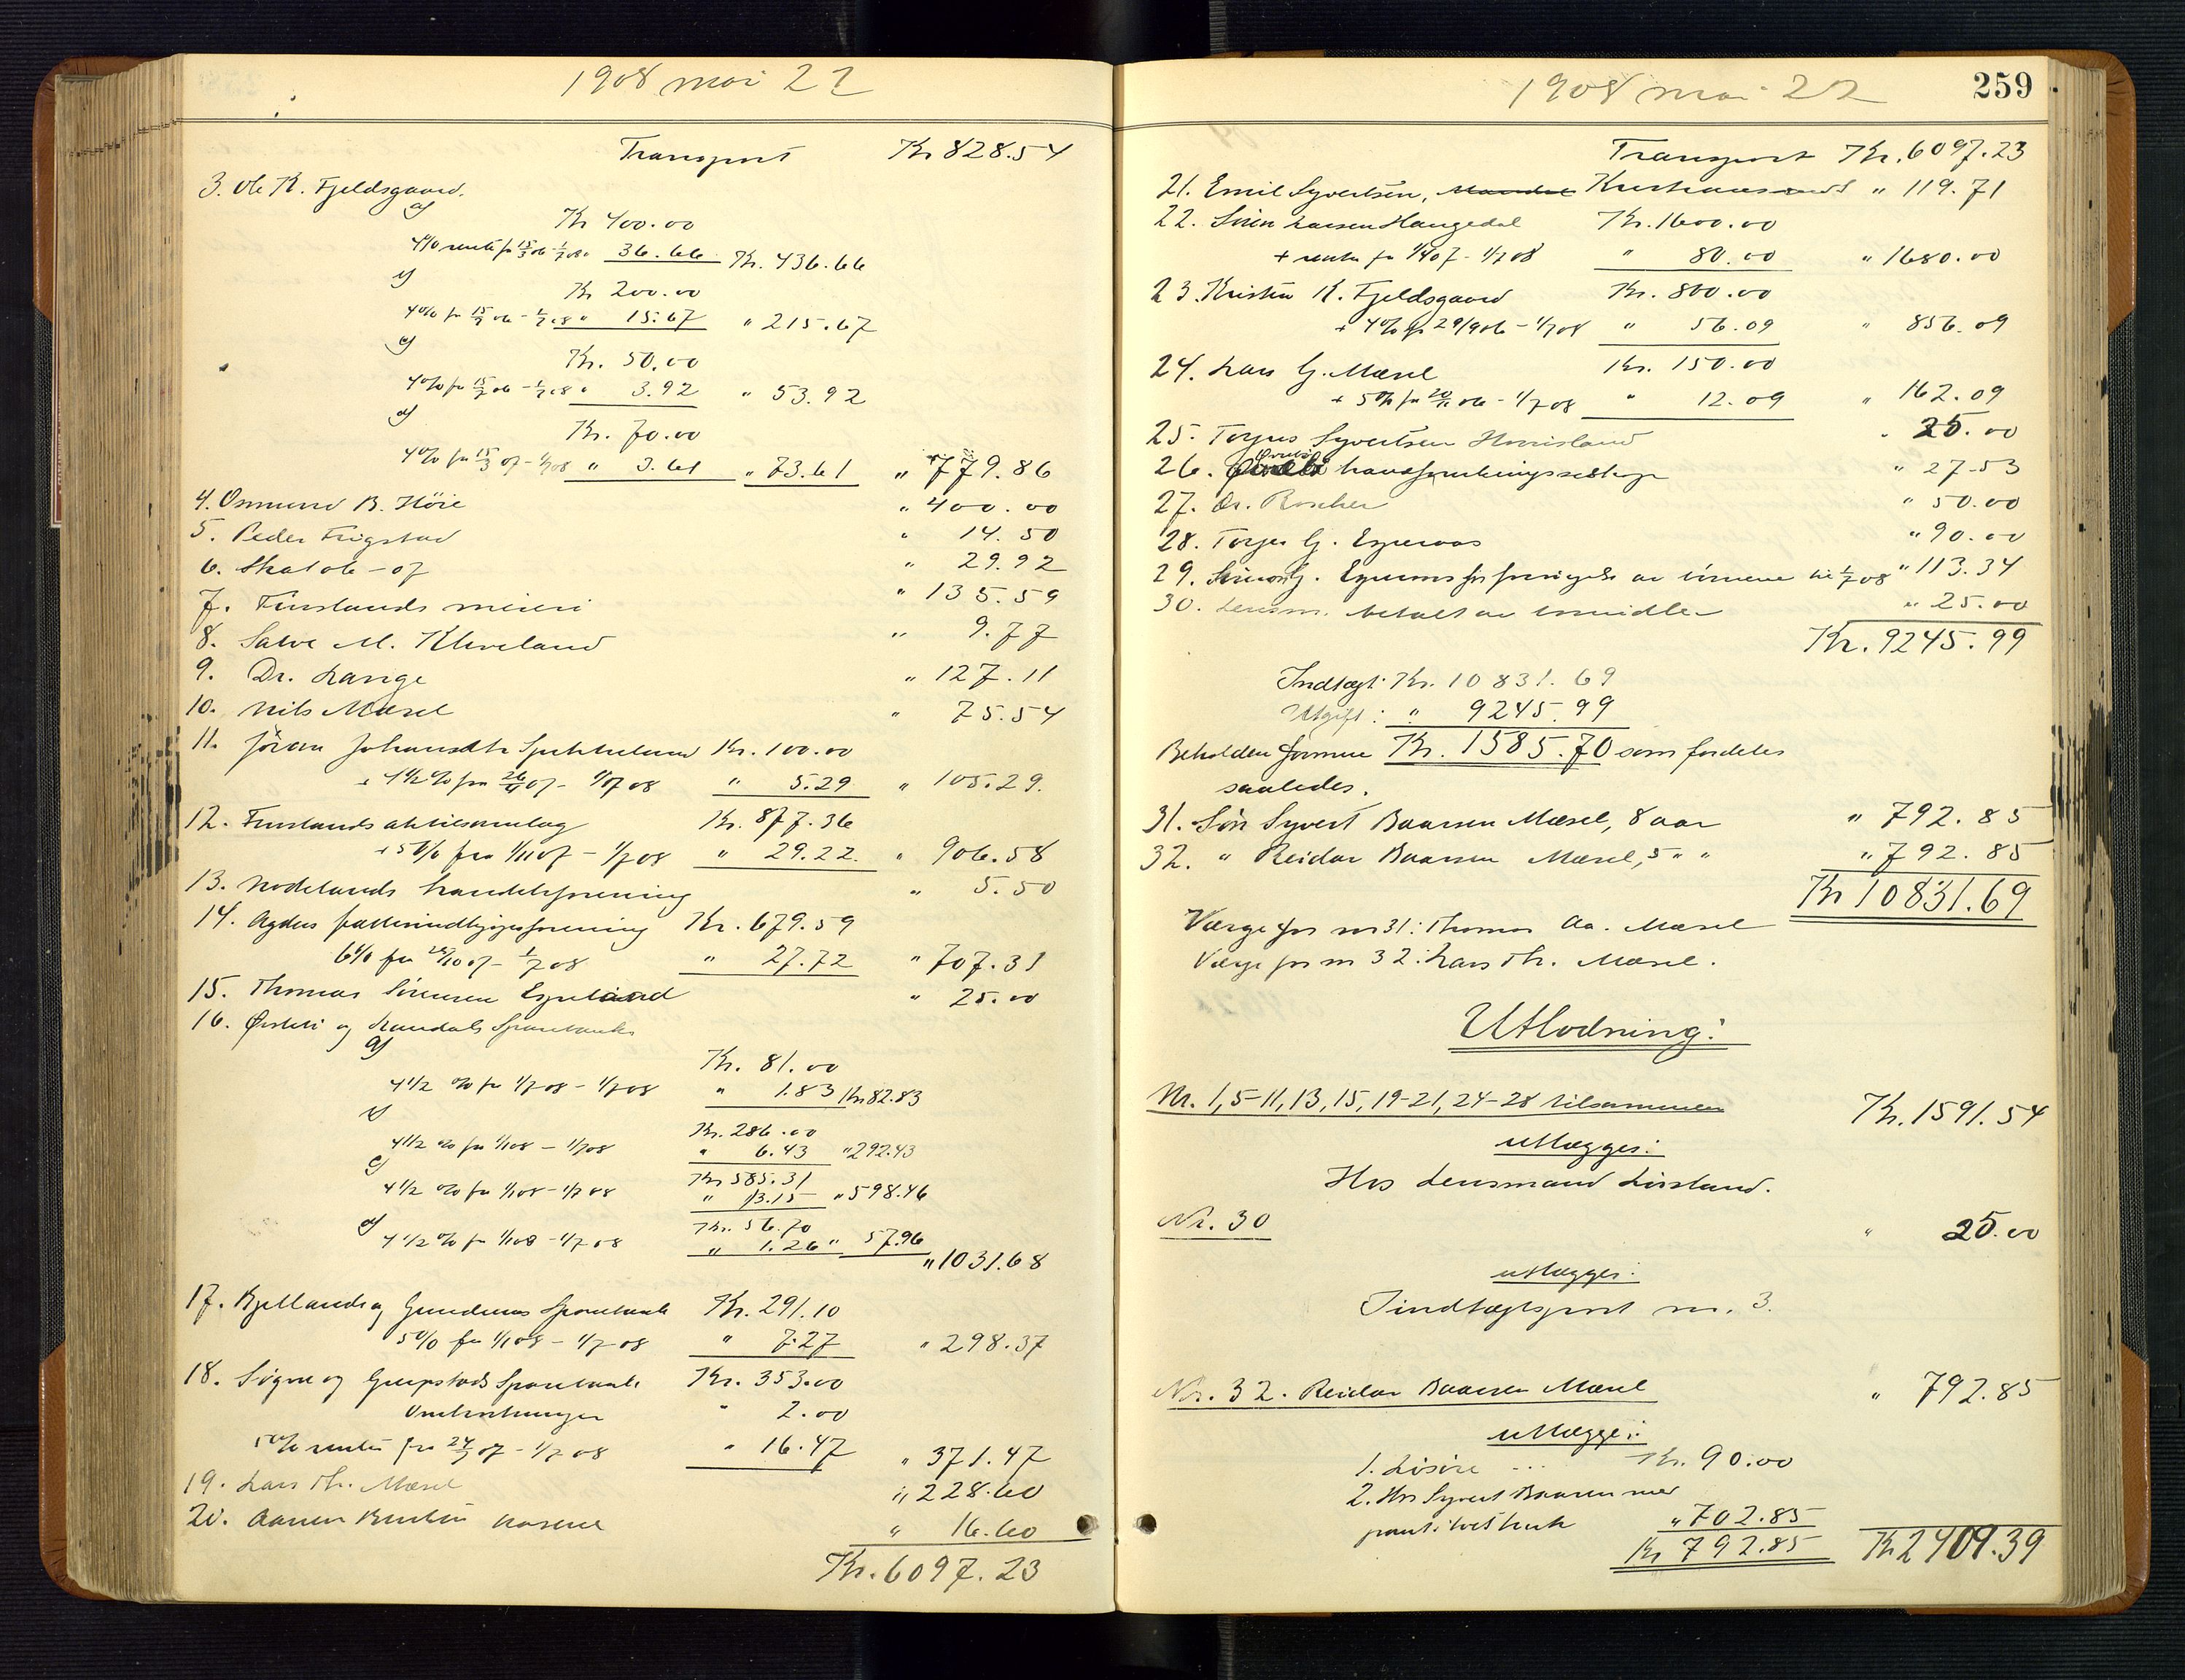 1908 mai 22
Transport Kr 828.54
3. Ole K. Fjeldsgaard.
a) Kr 400.00
4% rente fr 15/3 06 - 1/7 08 " 36.66 Kr. 436.66
b) Kr 200.00
4% fr 15/7 06 - 1/7 08 " 15.67 " 215.67
c) Kr. 50.00
4% fr 15/7 06 - 1/7 08 " 3.92 " 53.92
d) Kr. 70.00
4% fra 15/3 07 - 1/7 08 " 3.61 " 73.61 " 779.86
4. Osmund B. Höie " 400.00
5. Peder Frigstad " 14.50
6. Skatole - of " 29.92
7. Finslands meieri " 135.59
8. Salve M. Kleveland " 9.77
9. Dr. Lange " 127.11
10. Nils Mæsel " 75.54
11. Jöran Johansdtr Kr. 100.00
+ 4 1/2 % fra 26/4 07 - 1/7 08 " 5.29 " 105.29.
12. Finslands Kr. 877.36
+ 5% fra 1/11 07 - 1/7 08 " 29.22. " 906.58
13. Nodelands handelsforening " 5.50
14. Agders fælles Kr. 679.59
6% fra 10 07 - 1/7 08 " 27.72 " 707.31
15. Thomas Sörensen Egeland " 25.00
16. Øvrebö og Sparebank
a) Kr. 81.00
4 1/2 % fr 1/1 08 - 1/7 08 " 1.83 Kr 82.83
b) Kr. 286.00
4 1/2 % fra 1/1 08 - 1/7 08 " 6.43 " 292.43
c) Kr 585.31
4 1/2 % fra 1/1 08 - 1/7 08 " 13.15 " 598.46
d) Kr. 56.70
4 1/2 % fr 1/1 08 - 1/7 08 " 1.26 " 57.96
" 1031.68
17. og Sparebank Kr. 291.10
5% fra 1/1 08 - 1/7 08 " 7.27 " 298.37
18. Søgne og Greipstads Sparebank Kr. 353.00
Omkostninger " 2.00
5% renter fra 24/7 07 - 1/7 08 " 16.47 " 371.47
19. Lars Th. Mæsel " 228.60
20. " 16.60
Kr. 6097.23
1908 mai 22 259
Transport Kr. 6097.23
21. Emil Syvertsen, Kristianssand " 119.71
22. Sören Larsen Haugedal Kr. 1600.00
+ renter fr 1/4 07 - 1/7 08 " 80.00 " 1680.00
23. Kristen K. Fjeldsgaard Kr. 800.00
+ 4% fr 29/9 06 - 1/7 08 " 56.09 " 856.09
24. Lars G. Mæsel Kr. 150.00
+ 5% fra 20/11 06 - 1/7 08 " 12.09 " 162.09
25. Torjus Syvertsen " 25.00
26. Øvrebö " 27.53
27. Dr. Roscher " 50.00
28. Torjer G. " 90.00
29. G. for av til 1/7 08 " 113.34
30. Lensm. betalt av " 25.00
Kr. 9245.99
Indtægt: Kr. 10831.69
Utgift: " 9245.99
Beholden formue Kr. 1585.70 som fordeles
saaledes.
31. Sön Syvert Baarsen Mæsel, 8 aar " 792.85
32. " Reidar Baarsen Mæsel, 5 " " " 792.85
Kr 10831.69
Værge for nr 31: Thomas Aa. Mæsel
Værge for nr 32: Lars Th. Mæsel.
Utlodning:
Nr. 1, 5-11, 13, 15, 19-21, 24-28 tilsammen Kr. 1591.54
utlægges:
Hos Lensmand Lövland.
Nr. 30 " 25.00
utlægges:
I indtægtspost nr. 3.
Nr. 32. Reidar Baarsen Mæsel " 792.85
utlægges:
1. Lösöre ... Kr. 90.00
2. Hos Syvert Baarsen med
pant i " 702.85
Kr 792.85 Kr 2409.39